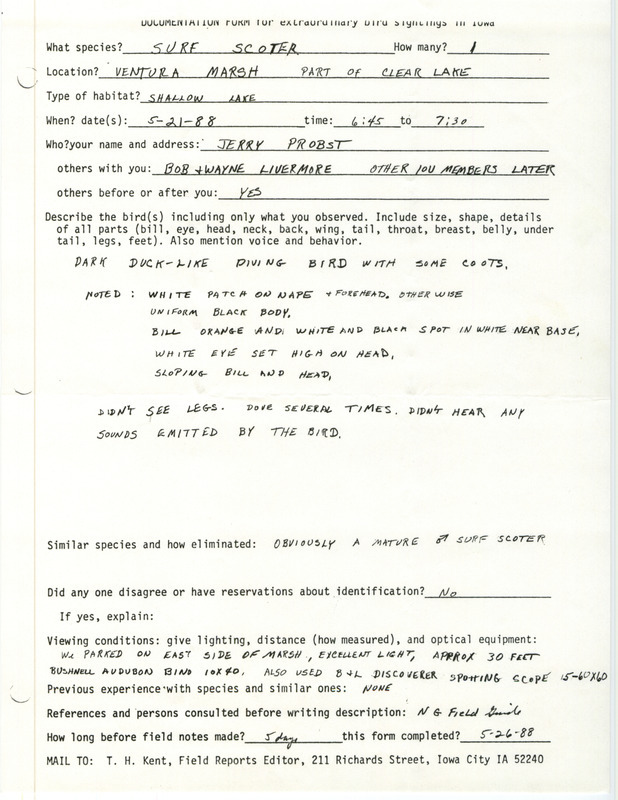 DOCUMENTATION FORM for extraordinary bird sightings in Iowa
What species? SURF SCOTER How many? 1
Location? VENTURA MARSH PART OF CLEAR LAKE
Type of habitat? SHALLOW LAKE
When? date(s): 5-21-88 time: 6:45 to 7:30
Who?your name and address: JERRY PROBST
others with you: BOB + WAYNE LIVERMORE OTHER IOU MEMBERS LATER
others before or after you: YES
Describe the bird(s) including only what you observed. Include size, shape, details
of all parts (bill, eye, head, neck, back, wing, tail, throat, breast, belly, under
tail, legs, feet). Also mention voice and behavior.
DARK DUCK-LIKE DIVING BIRD WITH SOME COOTS.
NOTED : WHITE PATCH ON NAPE + FOREHEAD. OTHER WISE
UNIFORM BLACK BODY.
BILL ORANGE AND WHITE AND BLACK SPOT IN WHITE NEAR BASE,
WHITE EYE SET HIGH ON HEAD,
SLOPING BILL AND HEAD,
DIDN'T SEE LEGS. DOVE SEVERAL TIMES. DIDN'T HEAR ANY
SOUNDS EMITTED BY THE BIRD.
Similar species and how eliminated: OBVIOUSLY A MATURE ♂ SURF SCOTER
Did any one disagree or have reservations about identification? No
If yes, explain:
Viewing conditions: give lighting, distance (how measured), and optical equipment:
WE PARKED ON EAST SIDE OF MARSH, EXCELLENT LIGHT, APPROX 30 FEET
BUSHNELL AUDUBON BINO 10X40. ALSO USED B+L DISCOVERER SPOTTING SCOPE 15-60X60
Previous experience with species and similar ones: NONE
References and persons consulted before writing description: NG Field Guide
How long before field notes made? 5 days this form completed? 5-26-88
MAIL TO: T. H. Kent, Field Reports Editor, 211 Richards Street, Iowa City IA 52240